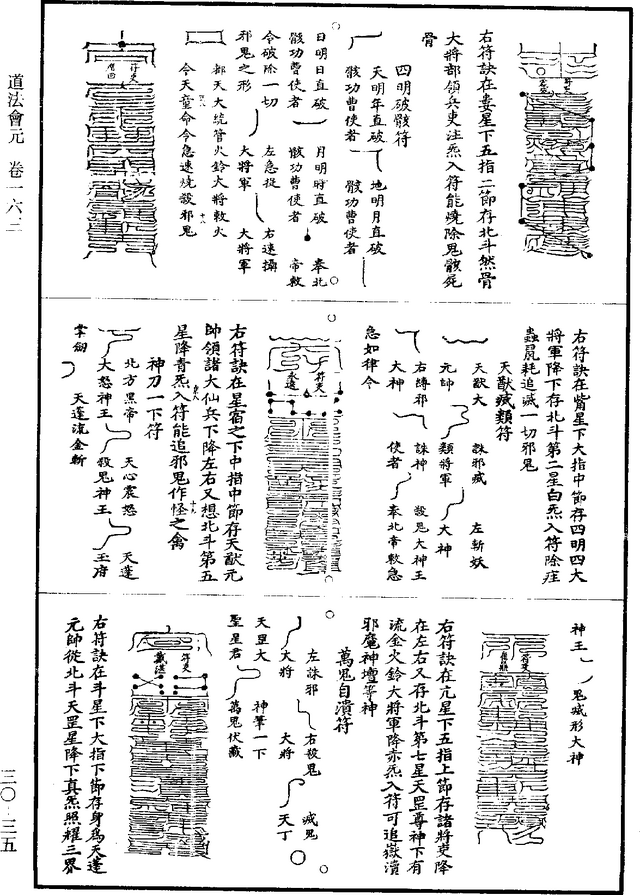 道法會元　卷一六二
三〇·三一五
右符訣在婁星下五指二節存北斗然骨
大將部領兵吏注炁入符能燒除鬼骸死
骨
四明破骸符
天明年直破　地明月直破
骸功曹使者　骸功曹使者
日明日直破　月明時直破　奉北
骸功曹使者　骸功曹使者　帝敕
令破除一切　左急捉　右速攝
邪鬼之形　大將軍　大將軍
都天大統管火鈴大將敕火
令天童命令急速燒設邪鬼
右符訣在觜星下大指中節存四明四大
將軍降下存北斗第二星白炁入符除疰
蟲屍耗追滅一切邪鬼
天猷滅類符
天猷大　誅邪滅　左斬妖
元帥　類將軍　大神
右縛邪　誅神　殺鬼大神王
大神　使者　奉北帝敕急
急如律令
右符訣在星宿之下中指中節存天猷元
帥領諸大仙兵下降左右又想北斗第五
星降青炁入符能追邪鬼作怪之禽
神刀一下符
北方黑帝　天心震怒　天蓬
大怒神王　殺鬼神王　玉府
掌劒　天蓬流金斬
神王　鬼滅形大神
右符訣在亢星下五指上節存諸將吏降
在左右又存北斗第七星天罡尊神下有
流金火鈴大將軍降赤炁入符可追嶽瀆
邪魔神壇等神
萬鬼自潰符
左誅邪　右殺鬼　滅鬼
大將　大將　天丁
天罡大　神筆一下
聖星君　萬鬼伏藏
右符訣在斗星下大指下節存身為天蓬
元帥從北斗天罡星降下真炁照耀三界